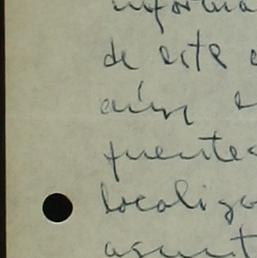 informa
de este
aún
fuentes
localiza
asunt